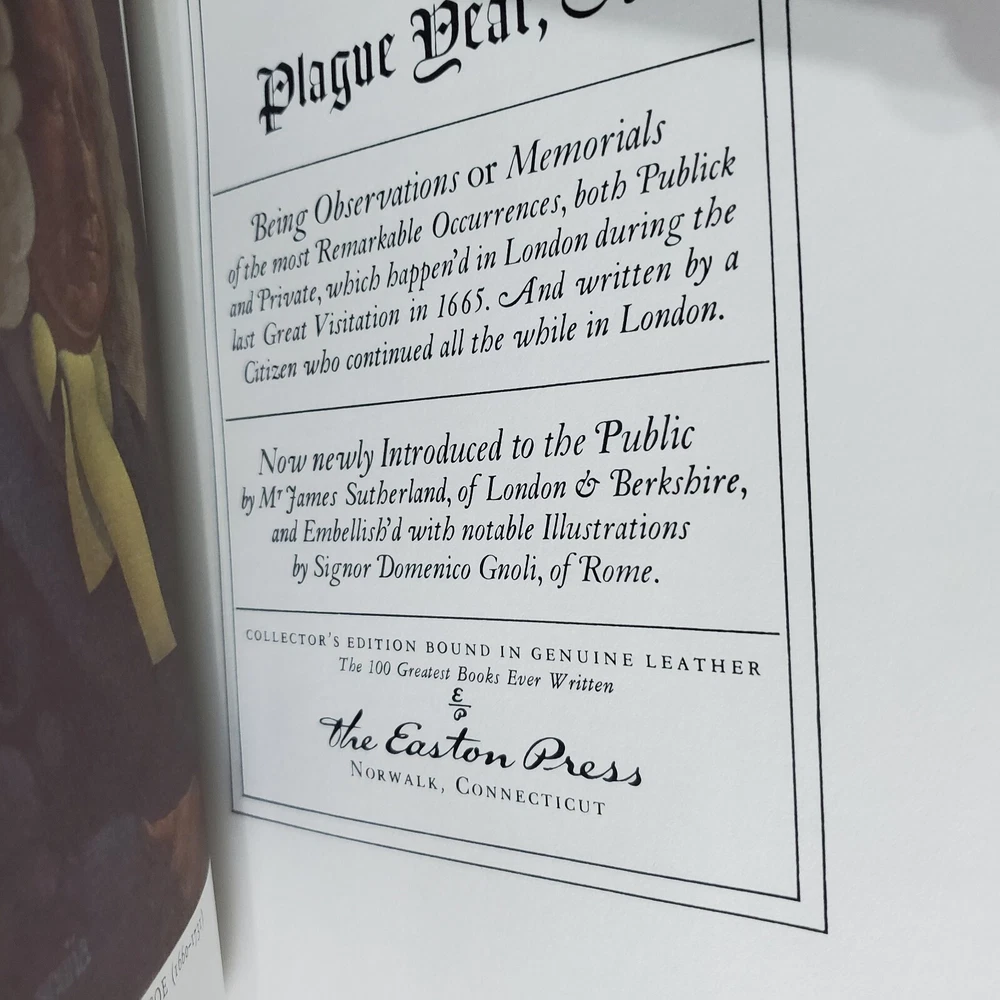 Plague Year,
Being Observations or Memorials
of the most Remarkable Occurrences, both Publick
and Private, which happen'd in London during the
last Great Visitation in 1665. And written by a
Citizen who continued all the while in London.
Now newly Introduced to the Public
by Mr James Sutherland, of London & Berkshire,
and Embellish'd with notable Illustrations
by Signor Domenico Gnoli, of Rome.
COLLECTOR'S EDITION BOUND IN GENUINE LEATHER
The 100 Greatest Books Ever Written
EP
The Easton Press
NORWALK, CONNECTICUT
OE (1660-1731)